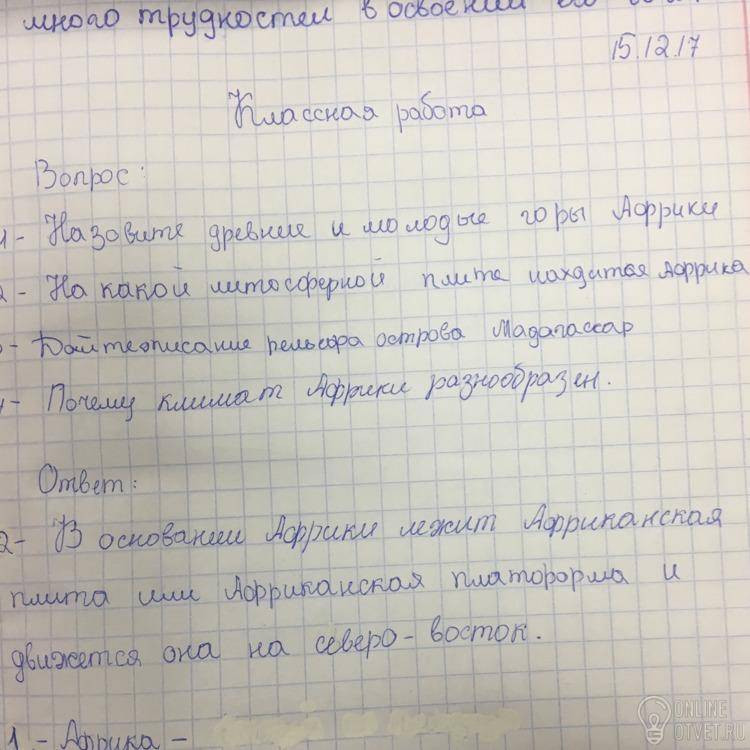 много трудностей в освоении
15.12.17
Классная работа
Вопрос:
1- Назовите древние и молодые горы Африки
2- На какой литосферной плите находится Африка
3- Дайте описание рельефа острова Мадагаскар
4- Почему климат Африки разнообразен.
Ответ:
2- В основании Африки лежит Африканская
плита или Африканская платформа и
движется она на северо-восток.
1 - Африка -
ONLINE
OTVET.RU